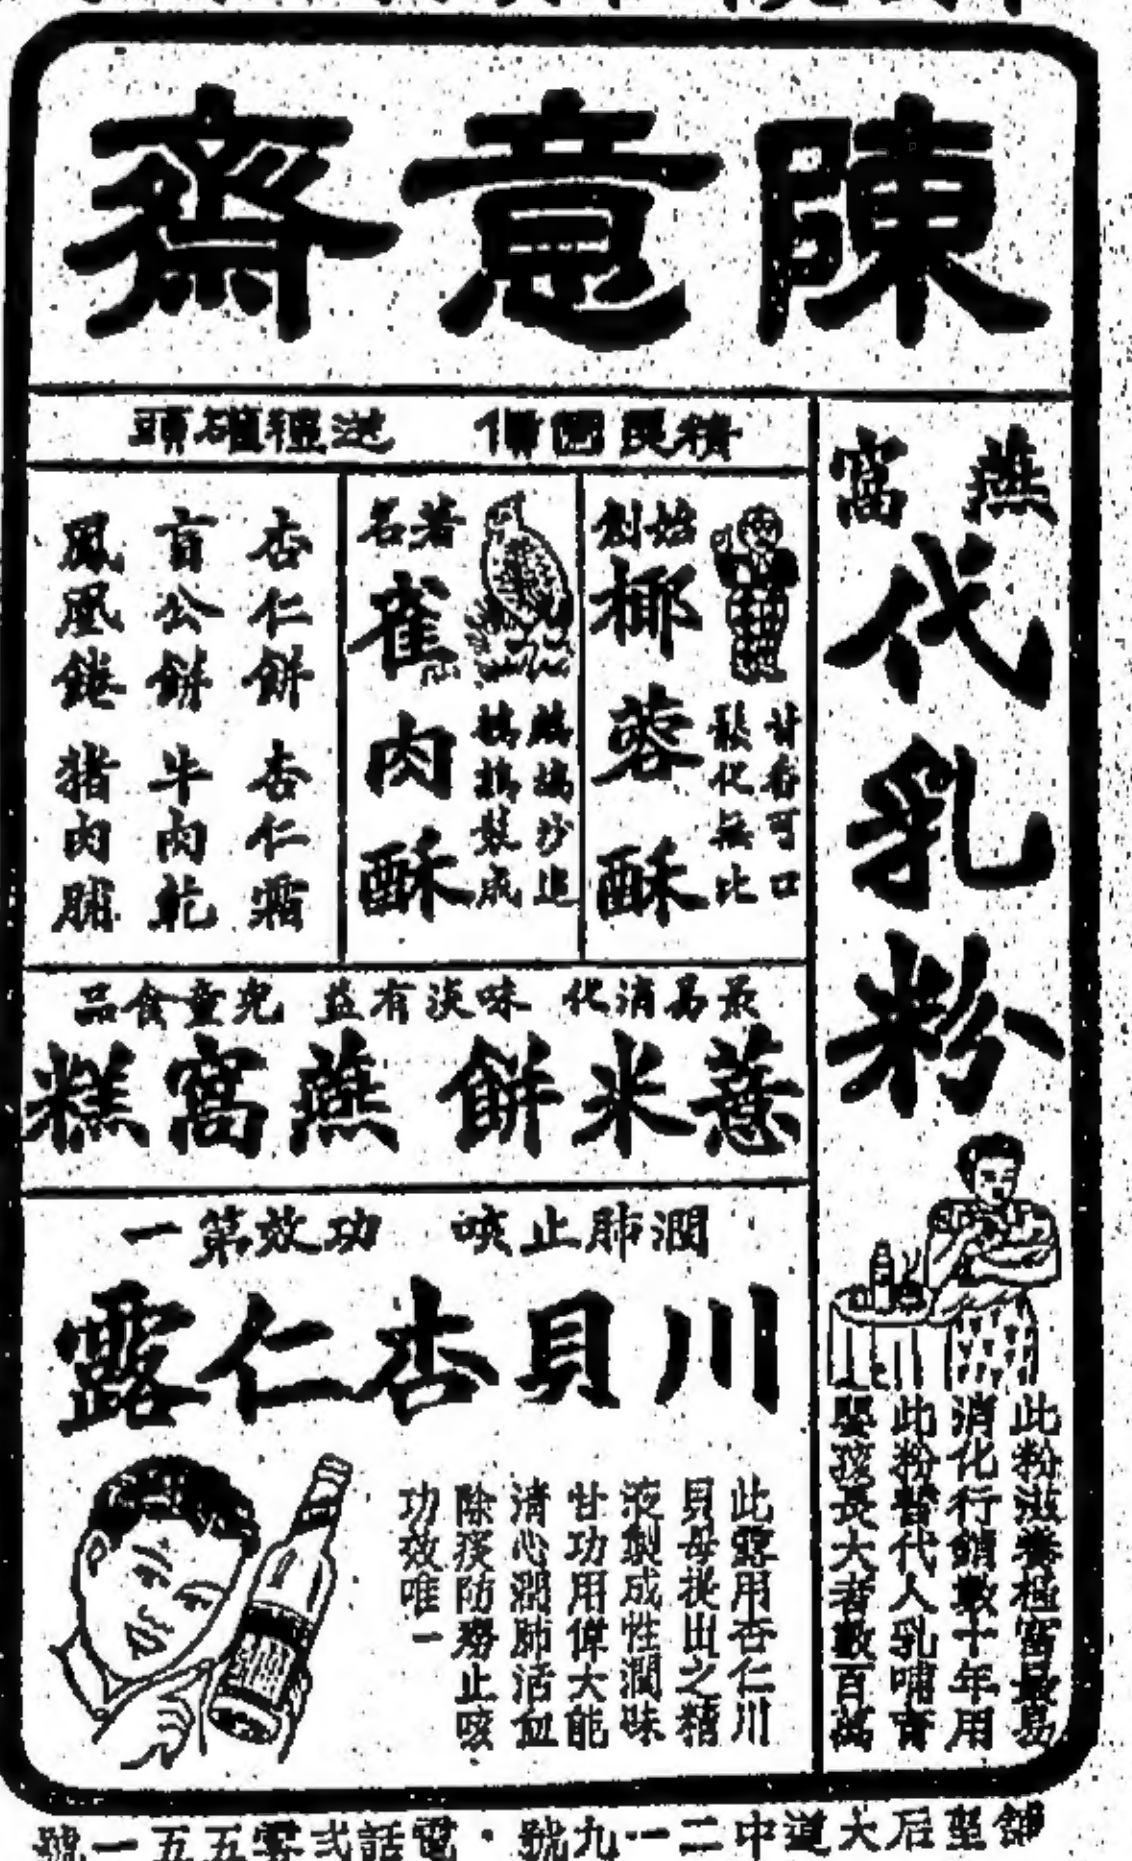 陳意齋
燕窩
代乳粉
此粉滋養極富最易
消化行銷數十年用
此粉替代人乳哺育
嬰孩長大者數百萬
始創
椰蓉酥
甘香可口
鬆化無比
著名
雀肉酥
杏仁餅 杏仁霜
盲公餅 牛肉乾
鳳凰錈 猪肉脯
最易消化 味淡有益 兒童食品
薏米餅 燕窩糕
潤肺止咳 功效第一
川貝杏仁露
此露用杏仁川
貝母提出之精
液製成性潤味
甘功用偉大能
清心潤肺活血
除痰防癆止咳
功效唯一
皇后大道中二一九號·電話弍零五五一號